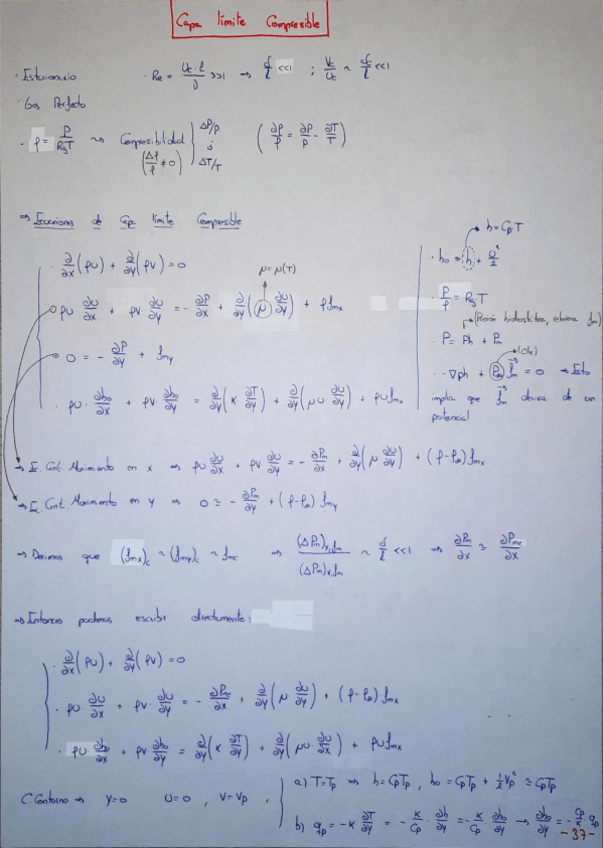 Capa límite Compresible
· Estacionario · Re = Uc·l/ν >>1 → δ/l <<1 ; Vc/Uc ~ δ/l <<1
· Gas Perfecto
· ρ = P/RgT → Compresibilidad (Δρ/ρ ≠ 0) { ΔP/P ó ΔT/T (∂ρ/ρ = ∂P/P - ∂T/T)
⇒ Ecuaciones de Capa límite Compresible
h = CpT
· ∂/∂x(ρu) + ∂/∂y(ρv) = 0
· h₀ = h + u²/2
μ = μ(T)
· ρu·∂u/∂x + ρv·∂u/∂y = -∂P/∂x + ∂/∂y(μ ∂u/∂y) + ρfmx
· P/ρ = RgT
(Presión hidrostática, fm)
· 0 = -∂P/∂y + ρfmy
· P = Ph + Pm
(cte)
· -∇ph + ρ∞ fm = 0 → Esto
· ρu·∂h₀/∂x + ρv·∂h₀/∂y = ∂/∂y(κ ∂T/∂y) + ∂/∂y(μu ∂u/∂y) + ρufmx
implica que fm deriva de un
potencial
⇒ E. Cant. Movimiento en x ⇒ ρu ∂u/∂x + ρv ∂u/∂y = -∂Pm/∂x + ∂/∂y(μ ∂u/∂y) + (ρ-ρ∞)fmx
⇒ E. Cant. Movimiento en y ⇒ 0 ≃ -∂Pm/∂y + (ρ-ρ∞)fmy
⇒ Decimos que (fmx)c ~ (fmy)c ~ fmc ⇒ (ΔPm)y,fm/(ΔPm)x,fm ~ δ/l <<1 ⇒ ∂Pm/∂x ≃ ∂Pme/∂x
⇒ Entonces podemos escribir directamente:
· ∂/∂x(ρu) + ∂/∂y(ρv) = 0
· ρu·∂u/∂x + ρv·∂u/∂y = -∂Pme/∂x + ∂/∂y(μ ∂u/∂y) + (ρ-ρ∞)fmx
· ρu ∂h₀/∂x + ρv ∂h₀/∂y = ∂/∂y(κ ∂T/∂y) + ∂/∂y(μu ∂u/∂y) + ρufmx
C. Contorno ⇒ y=0 u=0 , v=vp , { a) T=Tp ⇒ h=CpTp , h₀ = CpTp + ½vp² ≃ CpTp
b) qp = -κ ∂T/∂y = -κ/Cp·∂h/∂y = -κ/Cp·∂h₀/∂y → ∂h₀/∂y = -Cp/κ qp
-37-